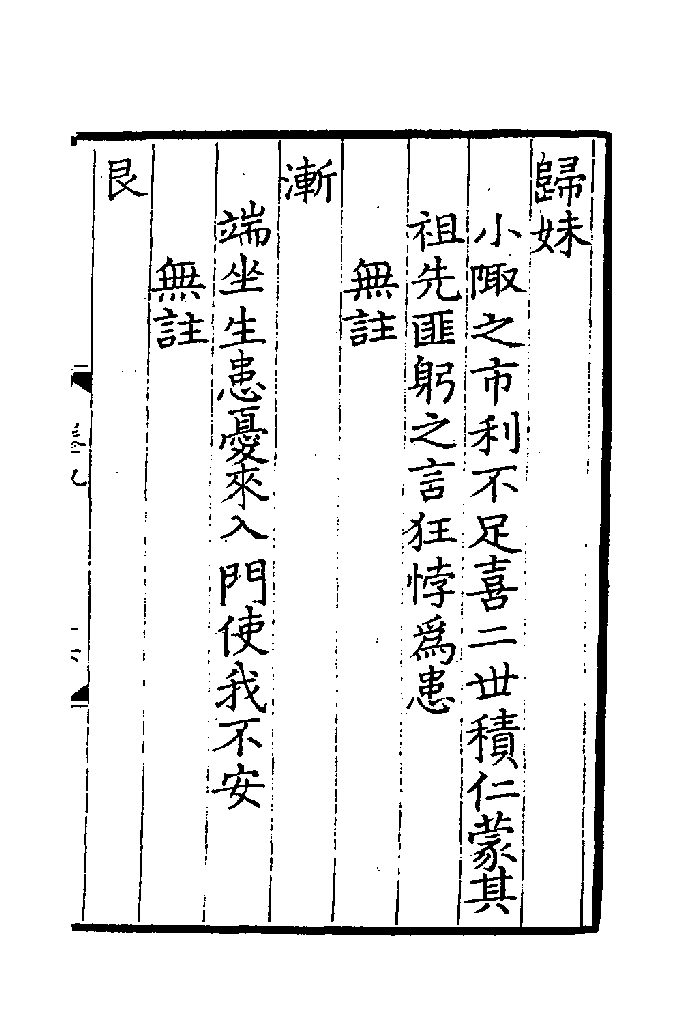 歸妹
小陬之市利不足喜二世積仁蒙其
祖先匪躬之言狂悖爲患
無註
漸
端坐生患憂來入門使我不安
無註
艮